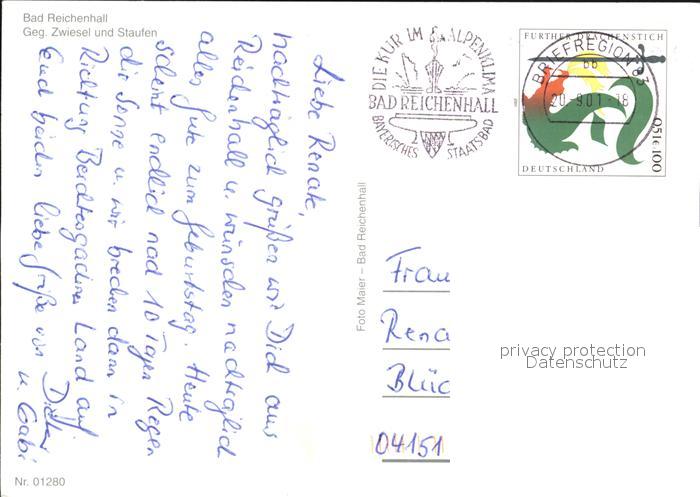 Bad Reichenhall
Geg. Zwiesel und Staufen
Liebe Renate,
nachträglich grüßen wir Dich aus
Reichenhall u. wünschen nachträglich
alles Gute zum Geburtstag. Heute
scheint endlich nach 10 Tagen Regen
die Sonne u. wir brechen dann in
Richtung Berchtesgadener Land auf
Euch beiden liebe Grüße von
u. Gabi
Nr. 01280
Foto Maier – Bad Reichenhall
DIE KUR IM ALPENKLIMA
BAD REICHENHALL
BAYERISCHES STAATSBAD
FURTHER DRACHENSTICH
BRIEFREGION 83
bb
20.-9.01-18
0,51€ 100
DEUTSCHLAND
Frau
Rena
Blüc
04151
privacy protection
Datenschutz